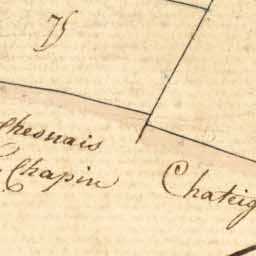 chesnais
Chapin
Chateig